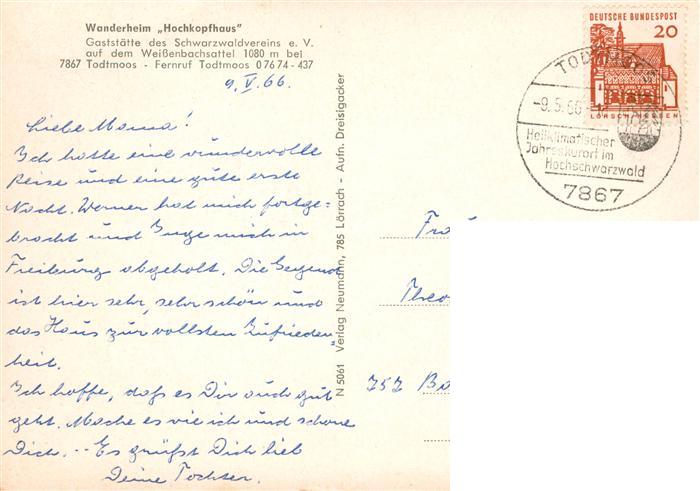 Wanderheim „Hochkopfhaus"
Gaststätte des Schwarzwaldvereins e. V.
auf dem Weißenbachsattel 1080 m bei
7867 Todtmoos - Fernruf Todtmoos 0 76 74 - 437
9. V. 66.
Liebe Mama!
Ich hatte eine wundervolle
Reise und eine gute erste
Nacht. Werner hat mich fortge=
bracht und Inge mich in
Freiburg abgeholt. Die Gegend
ist hier sehr, sehr schön und
das Haus zur vollsten Zufrieden=
heit.
Ich hoffe, daß es Dir auch gut
geht. Mache es wie ich und schone
Dich. -- Es grüßt Dich lieb
Deine Tochter.
N 5061 Verlag Neumann, 785 Lörrach - Aufn. Dreisigacker
DEUTSCHE BUNDESPOST
20
LORSCH/HESSEN
TODTMOOS
-9.5.66
Heilklimatischer
Jahreskurort im
Hochschwarzwald
7867
Frau
Theo
757 Ba